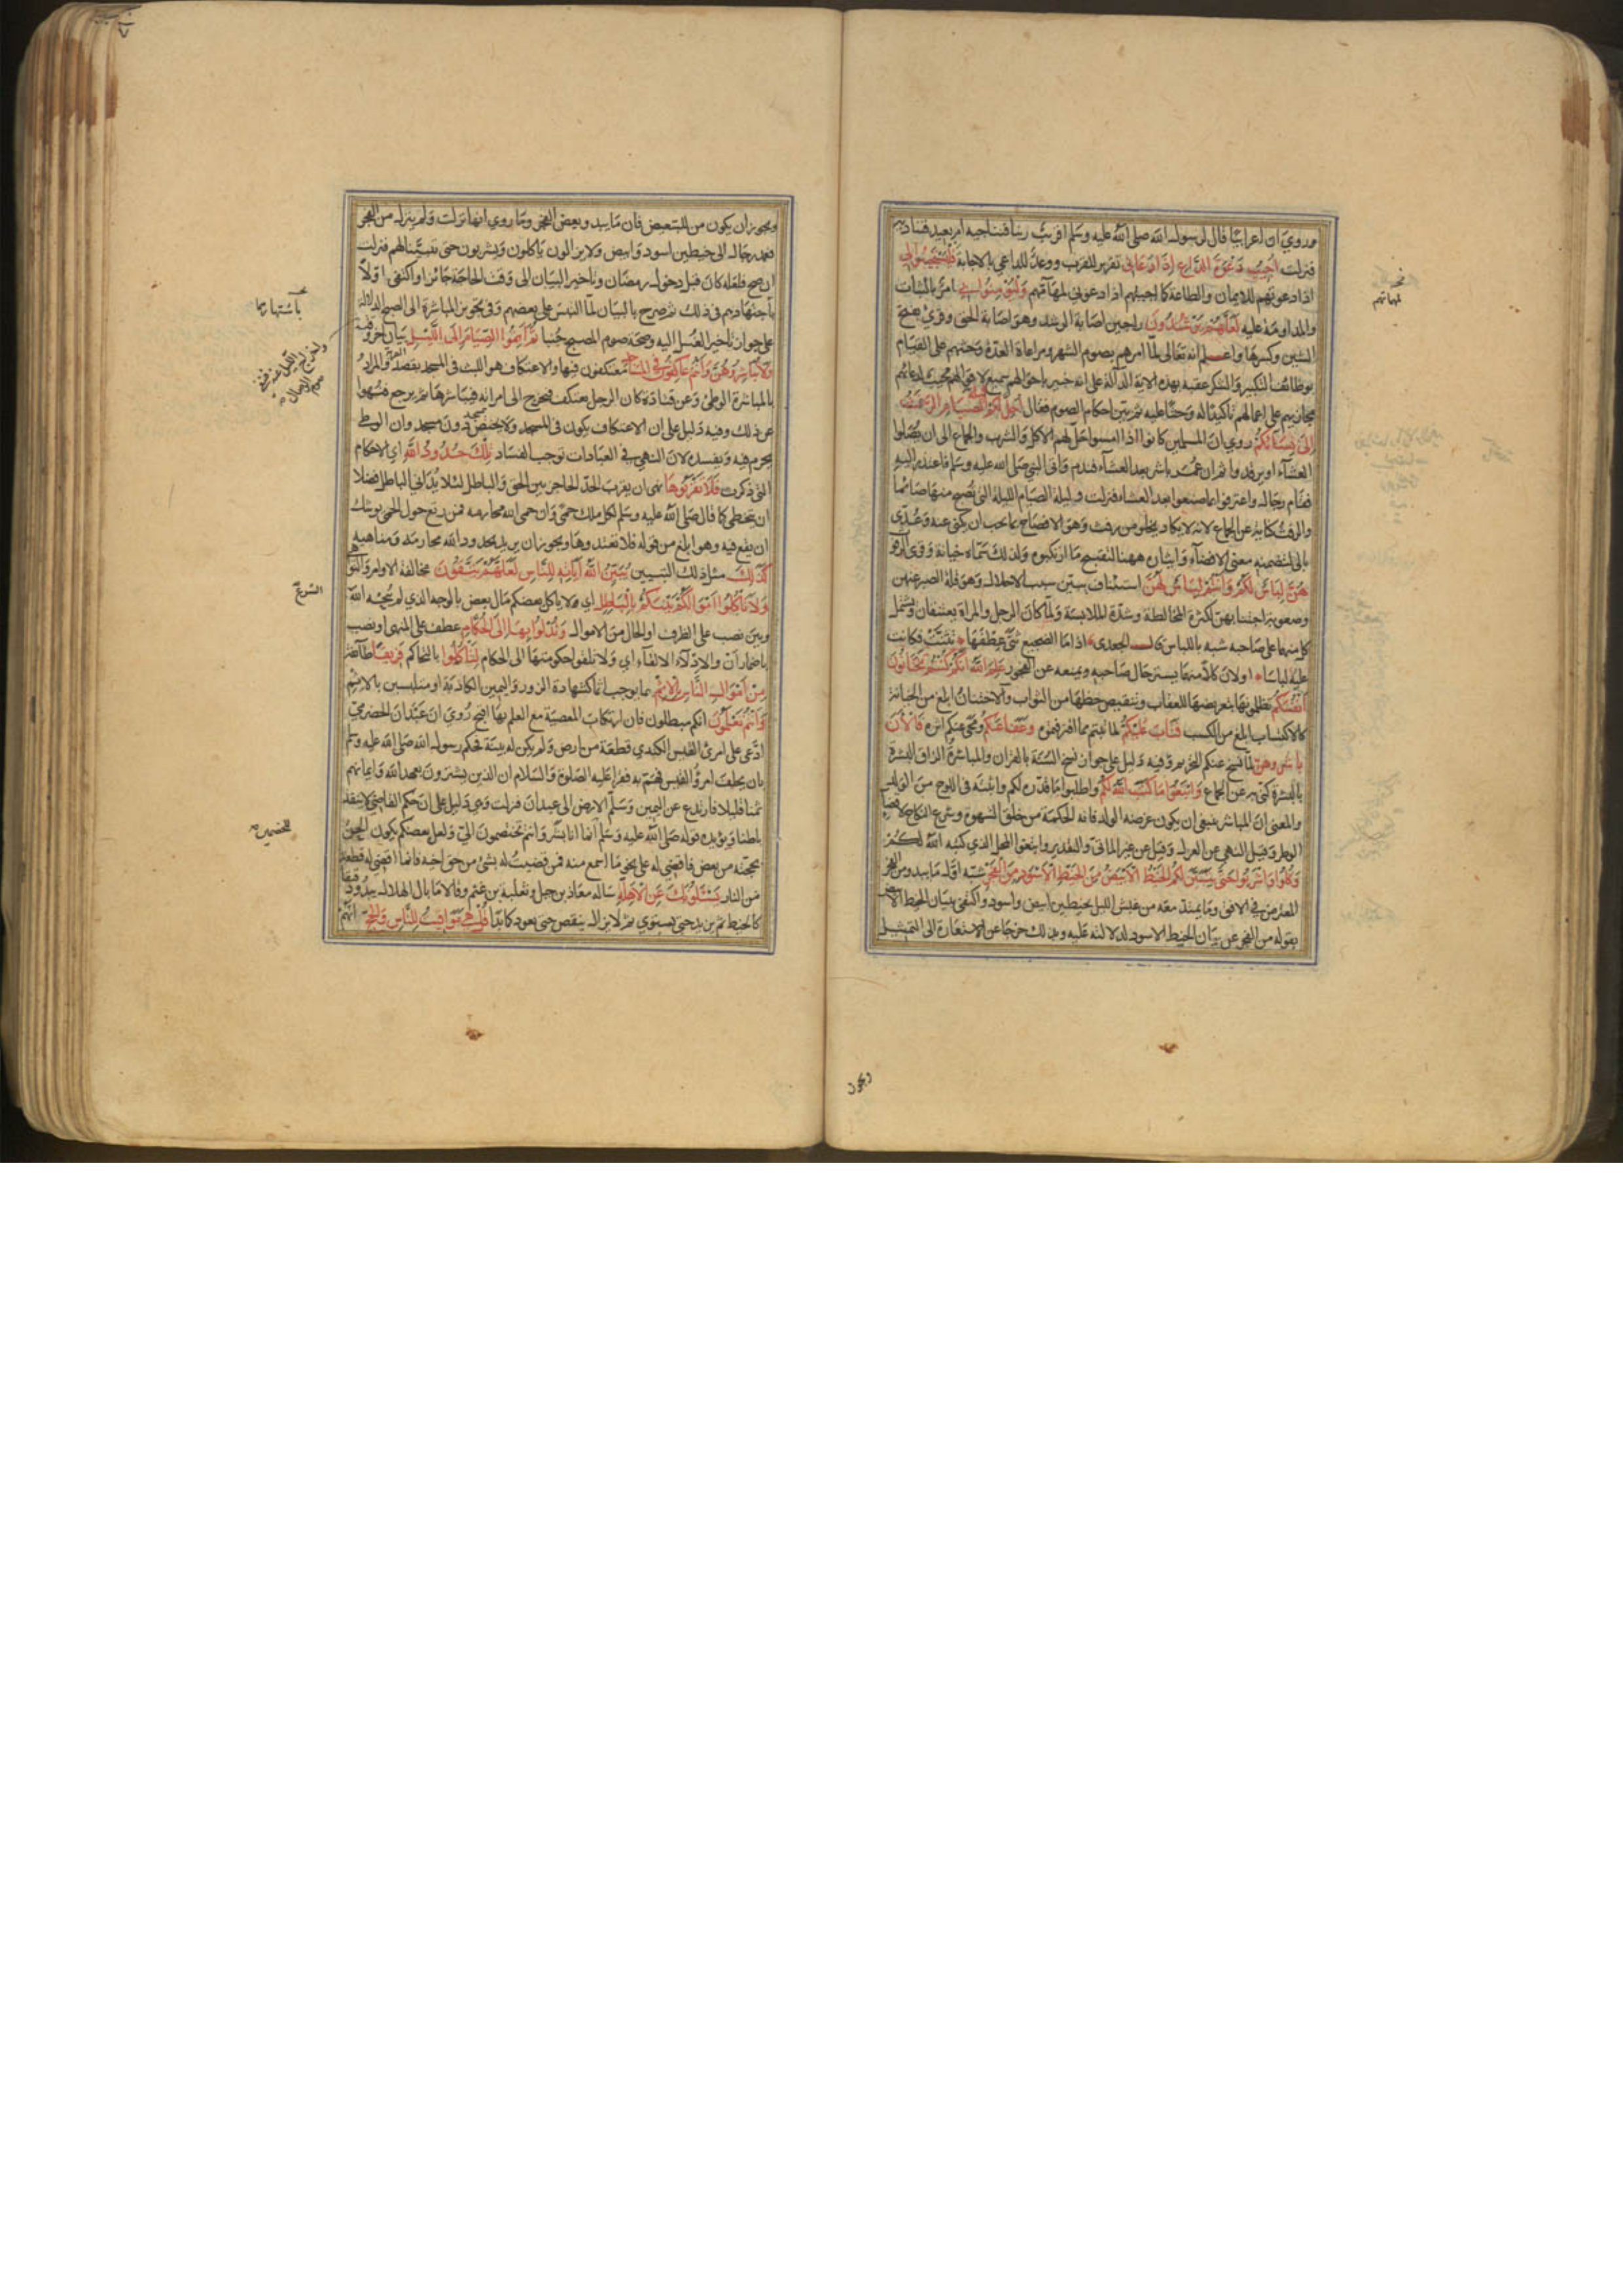 روي ان اعرابيا قال لرسول الله صلى الله عليه وسلم اقريب ربنا فنناجيه ام بعيد فنناديه
فنزلت اجيب دعوة الداع اذا دعان تقرير للقرب ووعد للداعي بالاجابة فليستجيبوا لي
اذا دعوتهم للايمان والطاعة كما اجيبهم اذا دعوني لمهماتهم وليؤمنوا بي امر بالثبات
والمداومة عليه لعلهم يرشدون راجين اصابة الرشد وهو اصابة الحق وقرئ بفتح
الشين وكسرها واعلم انه تعالى لما امرهم بصوم الشهر ومراعاة العدة وحثهم على القيام
بوظائف التكبير والشكر عقبه بهذه الاية الدالة على انه خبير باحوالهم سميع لاقوالهم مجيب لدعائهم
مجازيهم على اعمالهم تاكيدا له وحثا عليه ثم بين احكام الصوم فقال احل لكم ليلة الصيام الرفث
الى نسائكم روي ان المسلمين كانوا اذا امسوا حل لهم الاكل والشرب والجماع الى ان يصلوا
العشاء او يرقدوا ثم ان عمر باشر بعد العشاء فندم واتى النبي صلى الله عليه وسلم فاعتذر اليه
فقام رجال واعترفوا بما صنعوا بعد العشاء فنزلت وليلة الصيام الليلة التي تصبح منها صائما
والرفث كناية عن الجماع لانه لا يكاد يخلو من رفث وهو الافصاح بما يجب ان يكنى عنه وعدي
بالى لتضمنه معنى الافضاء وايثاره ههنا لتقبيح ما ارتكبوه ولذلك سماه خيانة وقرئ الرفوث
هن لباس لكم وانتم لباس لهن استئناف يبين سبب الاحلال وهو قلة الصبر عنهن
وصعوبة اجتنابهن لكثرة المخالطة وشدة الملابسة ولما كان الرجل والمراة يعتنقان ويشتمل
كل منهما على صاحبه شبه باللباس قال الجعدي اذا ما الضجيع ثنى عطفها تثنت فكانت
عليه لباسا او لان كلا منهما يستر حال صاحبه ويمنعه عن الفجور علم الله انكم كنتم تختانون
انفسكم تظلمونها بتعريضها للعقاب وتنقيص حظها من الثواب والاختيان ابلغ من الخيانة
كالاكتساب ابلغ من الكسب فتاب عليكم لما تبتم مما اقترفتموه وعفا عنكم ومحى عنكم اثره فالآن
باشروهن لما نسخ عنكم التحريم وفيه دليل على جواز نسخ السنة بالقران والمباشرة الزاق البشرة
بالبشرة كنى به عن الجماع وابتغوا ما كتب الله لكم واطلبوا ما قدره لكم واثبته في اللوح من الولد
والمعنى ان المباشر ينبغي ان يكون غرضه الولد فانه الحكمة من خلق الشهوة وشرع النكاح لا قضاء
الوطر وقيل النهي عن العزل وقيل عن غير الماتى والتقدير وابتغوا المحل الذي كتبه الله لكم
وكلوا واشربوا حتى يتبين لكم الخيط الابيض من الخيط الاسود من الفجر شبه اول ما يبدو من الفجر
المعترض في الافق وما يمتد معه من غبش الليل بخيطين ابيض واسود واكتفى ببيان الخيط الابيض
بقوله من الفجر عن بيان الخيط الاسود لدلالته عليه وبذلك خرجا عن الاستعارة الى التمثيل
لمهماتهم
ويجوز
ويجوز ان يكون من للتبعيض فان ما يبدو بعض الفجر وما روي انها نزلت ولم ينزل من الفجر
فعمد رجال الى خيطين اسود وابيض ولا يزالون ياكلون ويشربون حتى يتبينا لهم فنزلت
ان صح فلعله كان قبل دخول رمضان وتاخير البيان الى وقت الحاجة جائز او اكتفى اولا
باجتهادهم في ذلك ثم صرح بالبيان لما التبس على بعضهم وفي تجويز المباشرة الى الصبح الدلالة
على جواز تاخير الغسل اليه وصحة صوم المصبح جنبا ثم اتموا الصيام الى الليل بيان اخر وقته
ولا تباشروهن وانتم عاكفون في المساجد معتكفون فيها والاعتكاف هو اللبث في المسجد بقصد القربة والمراد
بالمباشرة الوطئ وعن قتادة كان الرجل يعتكف فيخرج الى امراته فيباشرها ثم يرجع فنهوا
عن ذلك وفيه دليل على ان الاعتكاف يكون في المسجد ولا يختص بمسجد دون مسجد وان الوطئ
يحرم فيه ويفسده لان النهي في العبادات يوجب الفساد تلك حدود الله اي الاحكام
التي ذكرت فلا تقربوها نهى ان يقرب الحد الحاجز بين الحق والباطل لئلا يداني الباطل فضلا
ان يتخطى كما قال صلى الله عليه وسلم ان لكل ملك حمى وان حمى الله محارمه فمن رتع حول الحمى يوشك
ان يقع فيه وهو ابلغ من قوله فلا تعتدوها ويجوز ان يريد بحدود الله محارمه ومناهيه
كذلك مثل ذلك التبيين يبين الله آياته للناس لعلهم يتقون مخالفة الاوامر والنواهي
ولا تاكلوا اموالكم بينكم بالباطل اي ولا ياكل بعضكم مال بعض بالوجه الذي لم يبحه الله
وبين نصب على الظرف او الحال من الاموال وتدلوا بها الى الحكام عطف على المنهي او نصب
باضمار ان والادلاء الالقاء اي ولا تلقوا حكومتها الى الحكام لتاكلوا بالتحاكم فريقا طائفة
من اموال الناس بالاثم بما يوجب اثما كشهادة الزور واليمين الكاذبة او متلبسين بالاثم
وانتم تعلمون انكم مبطلون فان ارتكاب المعصية مع العلم بها اقبح روي ان عبدان الحضرمي
ادعى على امرئ القيس الكندي قطعة من ارض ولم يكن له بينة فحكم رسول الله صلى الله عليه وسلم
بان يحلف امرؤ القيس فهم به فقرا عليه الصلوة والسلام ان الذين يشترون بعهد الله وايمانهم
ثمنا قليلا فارتدع عن اليمين وسلم الارض الى عبدان فنزلت وهي دليل على ان حكم القاضي لا ينفذ
باطنا ويؤيده قوله صلى الله عليه وسلم انما انا بشر وانتم تختصمون الي ولعل بعضكم يكون الحن
بحجته من بعض فاقضي له على نحو ما اسمع منه فمن قضيت له بشئ من حق اخيه فانما اقضي له قطعة
من النار يسئلونك عن الاهلة ساله معاذ بن جبل وثعلبة بن غنم وقالا ما بال الهلال يبدو دقيقا
كالخيط ثم يزيد حتى يستوي ثم لا يزال ينقص حتى يعود كما بدا قل هي مواقيت للناس والحج
باشتهارهما